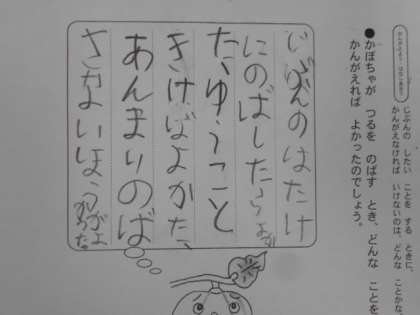 じぶんの したい ことを する ときに、
かんがえなければ いけないのは、どんな ことかな。
●かぼちゃが つるを のばす とき、どんな ことを
かんがえれば よかったのでしょう。
じぶんのはたけ
にのばしたらよか
たゆうこと
きけばよかた、
あんまりのば
さないほうがよ
かった。